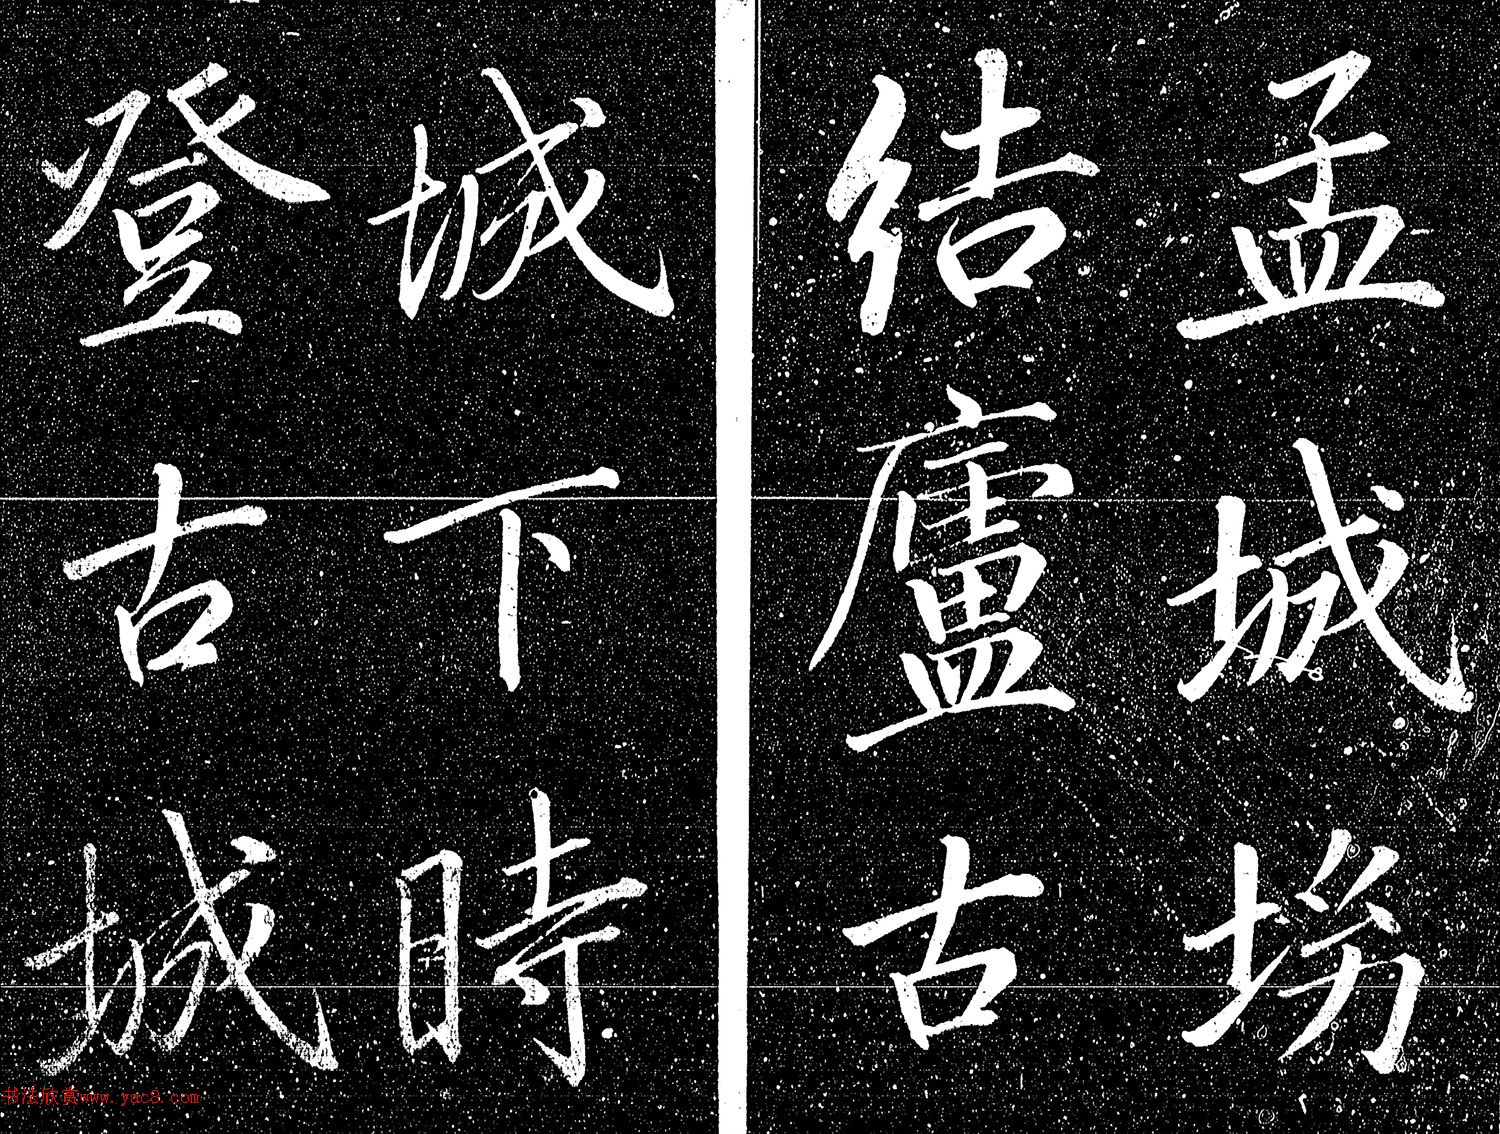 孟城坳
結廬古
城下時
登古城
书法欣赏www.yac8.com